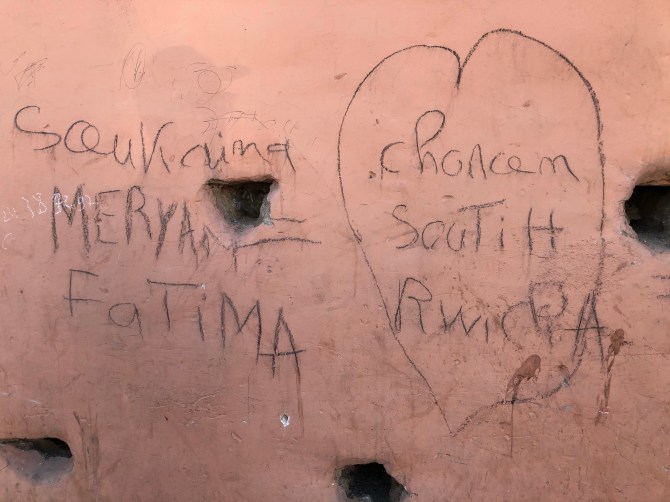 Soukaina
MERYAM
FaTiMA
chorcem
SOUTiH
RWiCHA